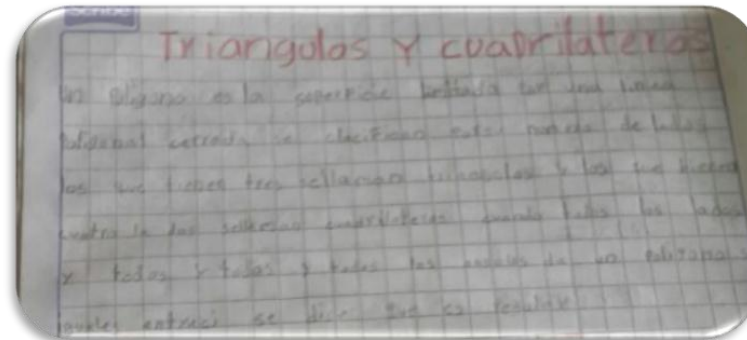 Scribe
Triangulos y cuadrilateros
Un poligono es la superficie limitada por una linea
poligonal cerrada se clacifican
por numero de lados
los que tienen tres sellaman triangulos y los que tienen
cuatro lados sellaman cuadrilateros cuando todos los lados
y todos y todos y todos los angulos de un poligono
iguales entreci se dice que es regular